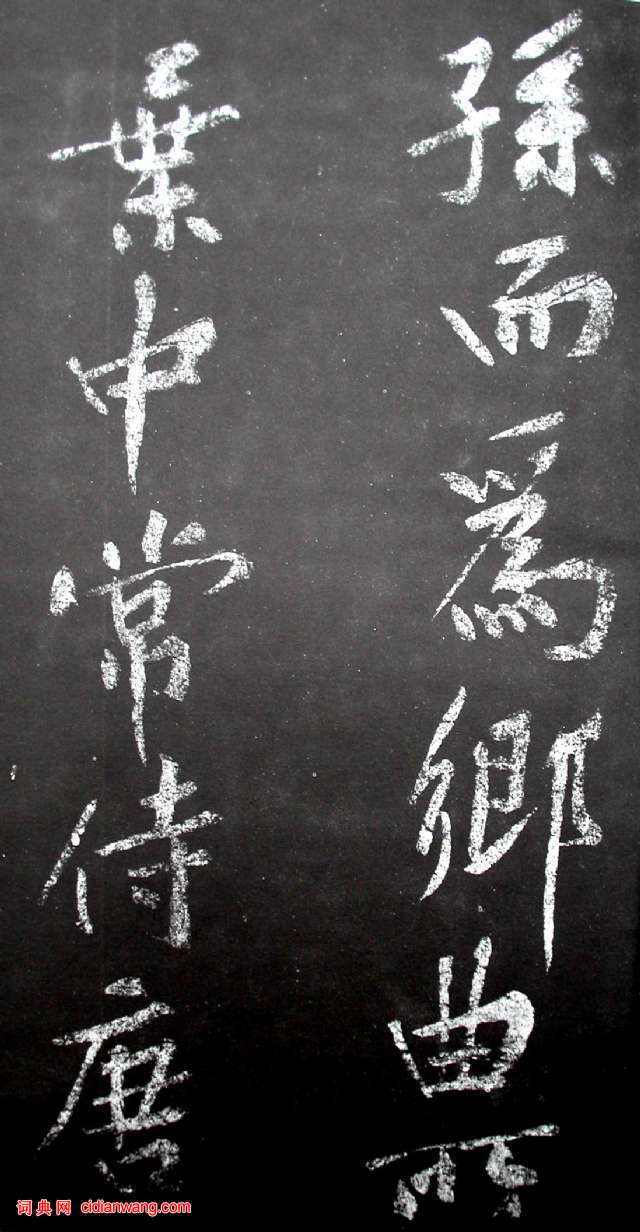 孫而爲鄉曲所
棄中常侍唐
词典网 cidianwang.com